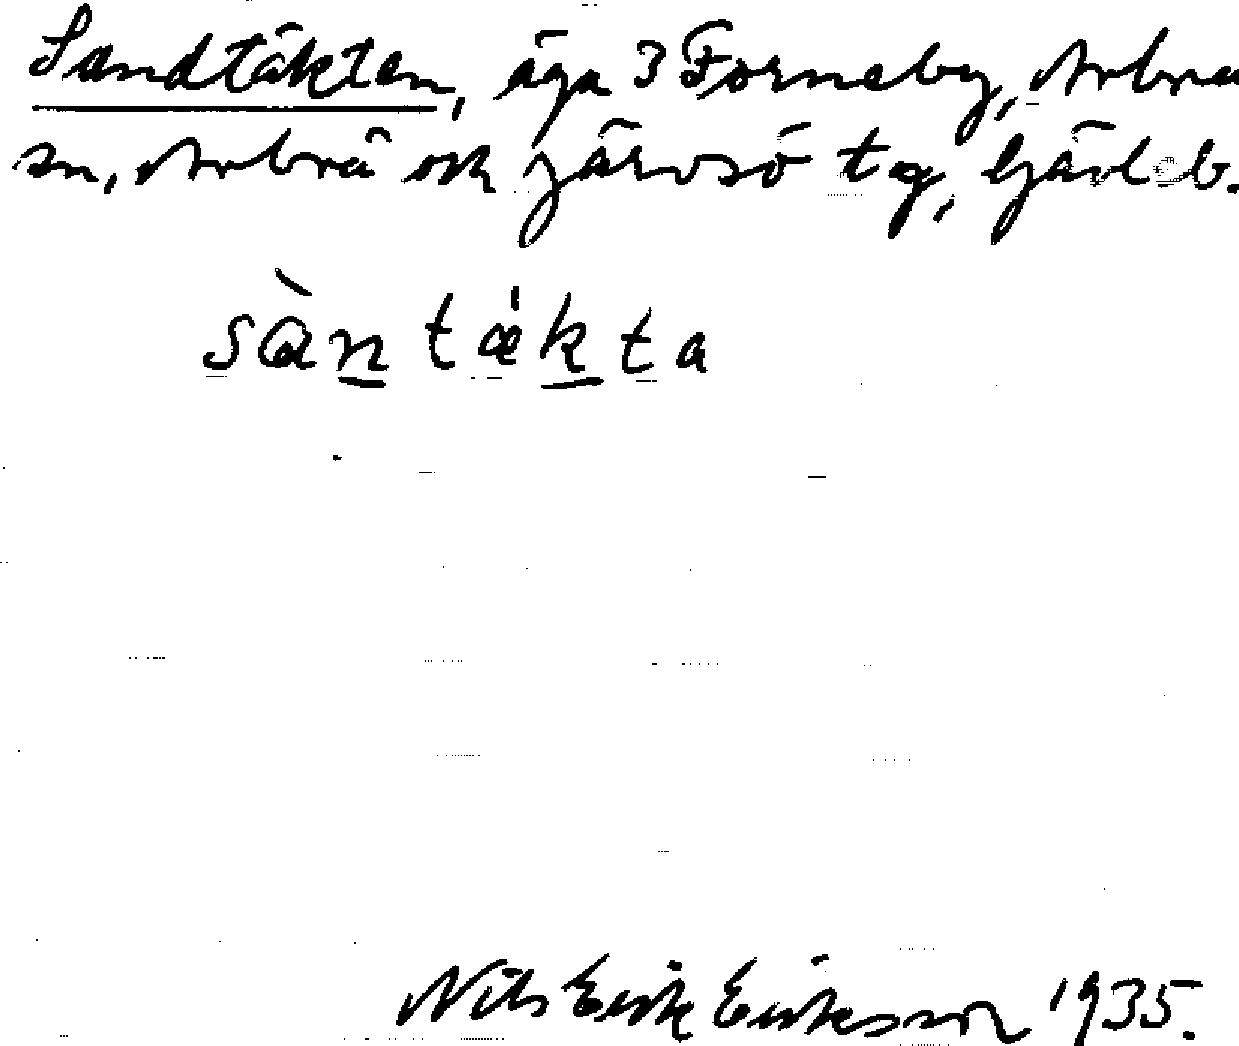 Sandtäkten, äga 3 Forneby, Arbrå
sn, Arbrå och Järvsö tg, Gävleb.
sàn tǽkta
Nils Erik Eriksson 1935.